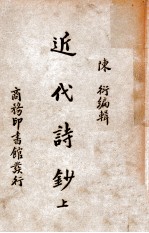 陳衍編輯
近代詩鈔 上
商務印書館發行